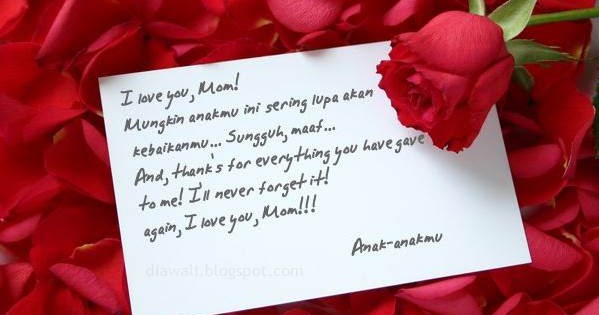 I love you, Mom!
Mungkin anakmu ini sering lupa akan
kebaikanmu... Sungguh, maaf...
And, thank's for everything you have gave
to me! I'll never forget it!
again, I love you, Mom!!!
Anak-anakmu
diawalt.blogspot.com